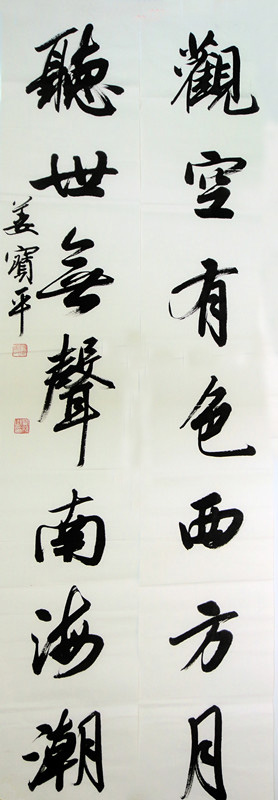 觀空有色西方月
聽世無聲南海潮
姜寶平